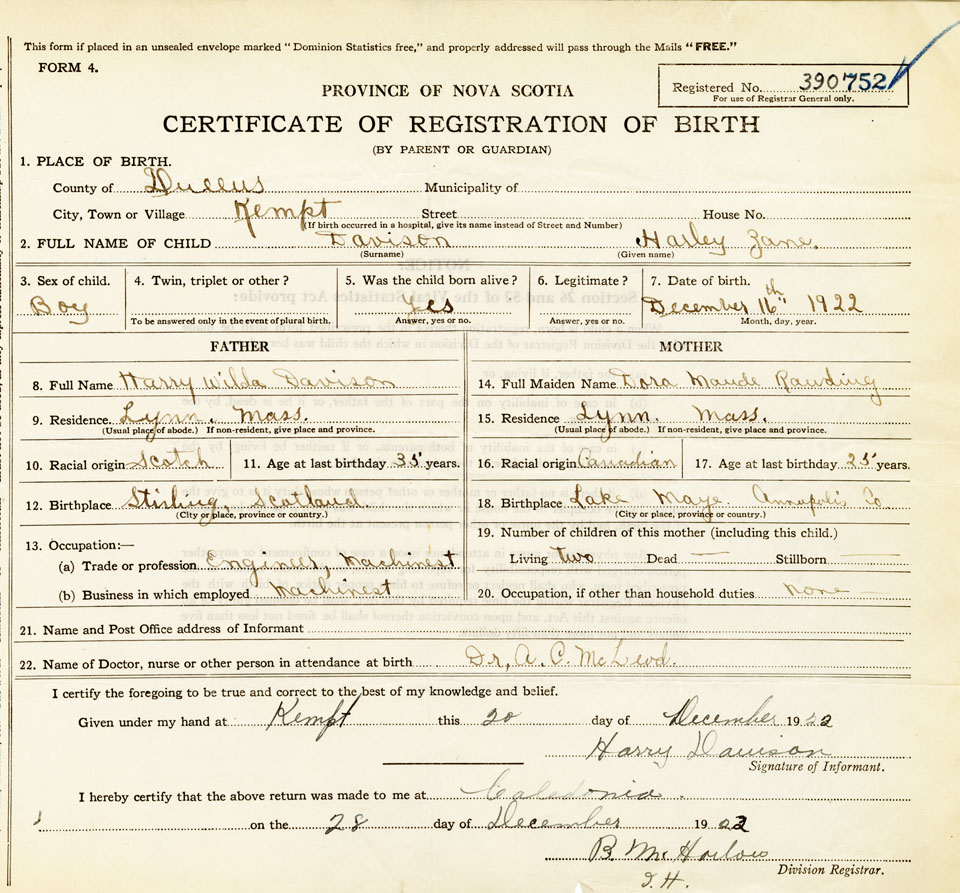 This form if placed in an unsealed envelope marked "Dominion Statistics free," and properly addressed will pass through the Mails "FREE."
FORM 4.
Registered No. 390752
For use of Registrar General only.
PROVINCE OF NOVA SCOTIA
CERTIFICATE OF REGISTRATION OF BIRTH
(BY PARENT OR GUARDIAN)
1. PLACE OF BIRTH.
County of Queens Municipality of
City, Town or Village Kempt Street House No.
(If birth occurred in a hospital, give its name instead of Street and Number)
2. FULL NAME OF CHILD Davison Harley Zane.
(Surname) (Given name)
3. Sex of child. 4. Twin, triplet or other? 5. Was the child born alive? 6. Legitimate? 7. Date of birth.
Boy Yes December 16th 1922
To be answered only in the event of plural birth. Answer, yes or no. Answer, yes or no. Month, day, year.
FATHER MOTHER
8. Full Name Harry Wilda Davison 14. Full Maiden Name Dora Maude Rawding
9. Residence. Lynn. Mass. 15. Residence Lynn. Mass.
(Usual place of abode.) If non-resident, give place and province. (Usual place of abode.) If non-resident, give place and province.
10. Racial origin Scotch 11. Age at last birthday 35 years. 16. Racial origin Canadian 17. Age at last birthday 25 years.
12. Birthplace Stirling, Scotland. 18. Birthplace Lake Maye Annapolis Co.
(City or place, province or country.) (City or place, province or country.)
13. Occupation:— 19. Number of children of this mother (including this child.)
(a) Trade or profession Engineer, Machinest Living two Dead — Stillborn —
(b) Business in which employed Machinest 20. Occupation, if other than household duties None —
21. Name and Post Office address of Informant
22. Name of Doctor, nurse or other person in attendance at birth Dr, A. C. McLeod.
I certify the foregoing to be true and correct to the best of my knowledge and belief.
Given under my hand at Kempt this 20 day of December 1922
Harry Davison
Signature of Informant.
I hereby certify that the above return was made to me at Caledonia.
on the 28 day of December 1922
B. McHarlow
Division Registrar.